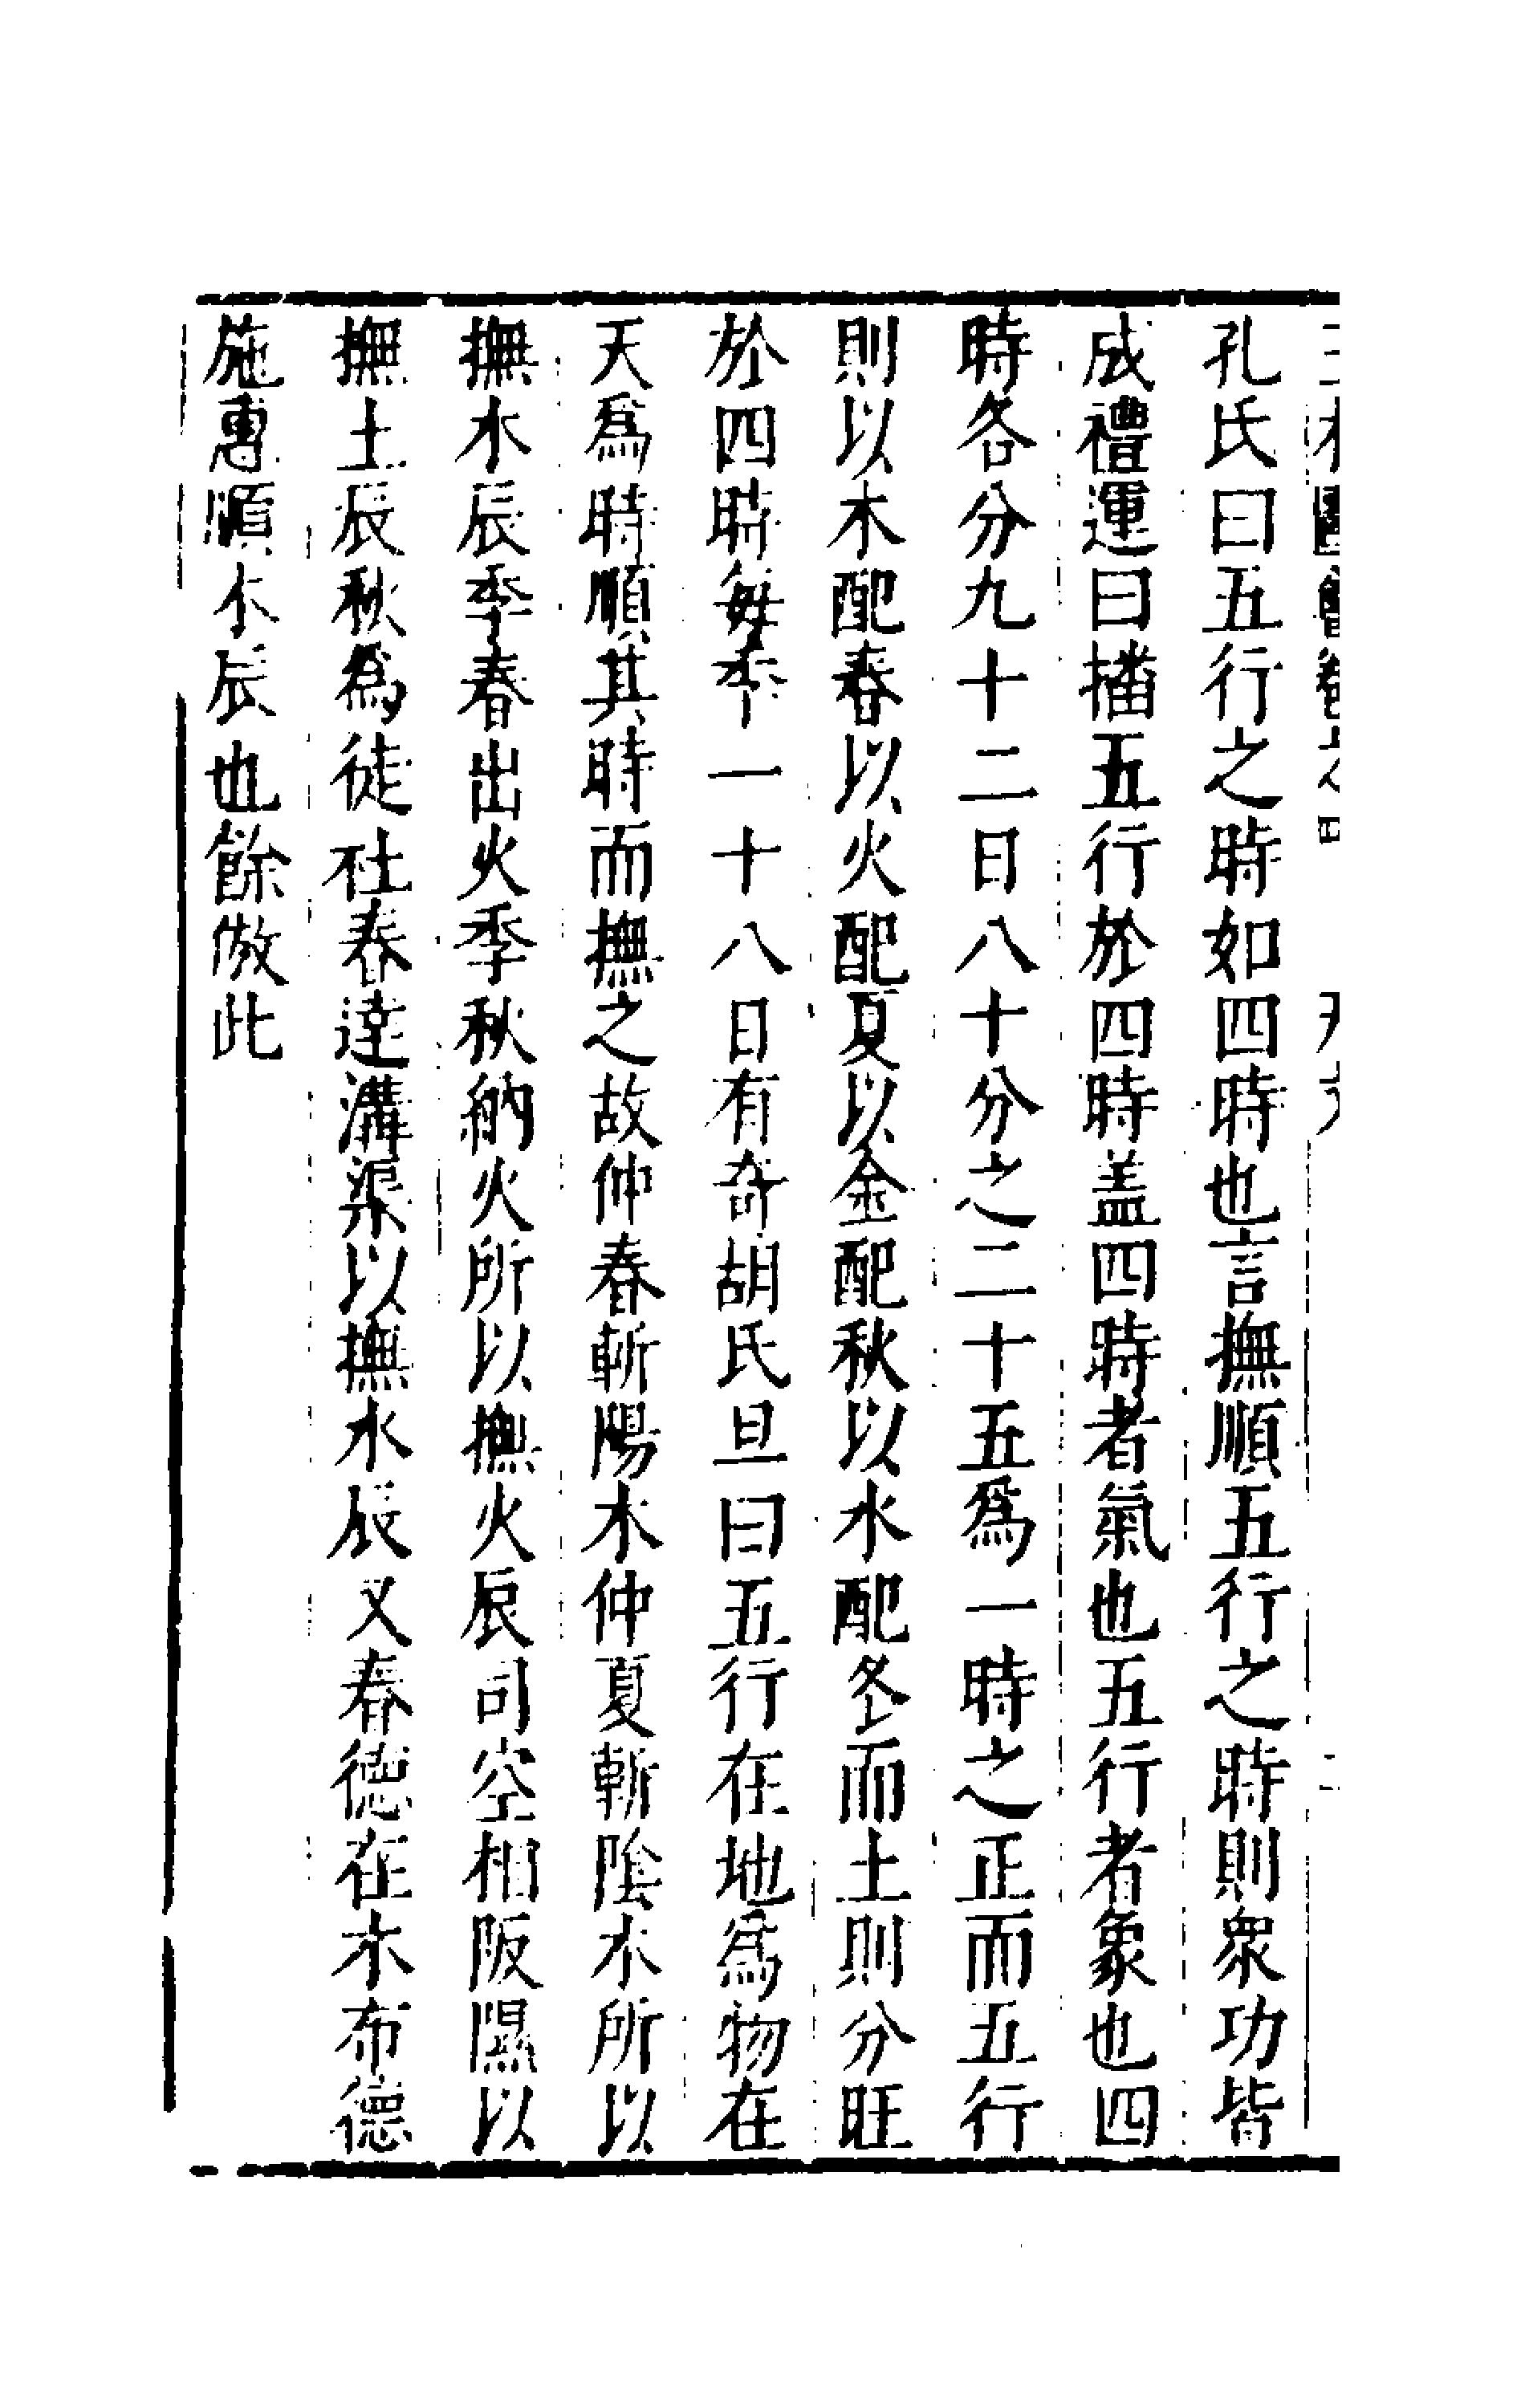 孔氏曰五行之時如四時也言撫順五行之時則衆功皆
成禮運曰播五行於四時盖四時者氣也五行者象也四
時各分九十二日八十分之二十五爲一時之正而五行
則以木配春以火配夏以金配秋以水配冬而土則分旺
於四時每季一十八日有奇胡氏旦曰五行在地爲物在
天爲時順其時而撫之故仲春斬陽木仲夏斬陰木所以
撫木辰季春出火季秋納火所以撫火辰司空相阪隰以
撫土辰秋爲徒杜春達溝渠以撫水辰又春德在木布德
施惠順木辰也餘倣此